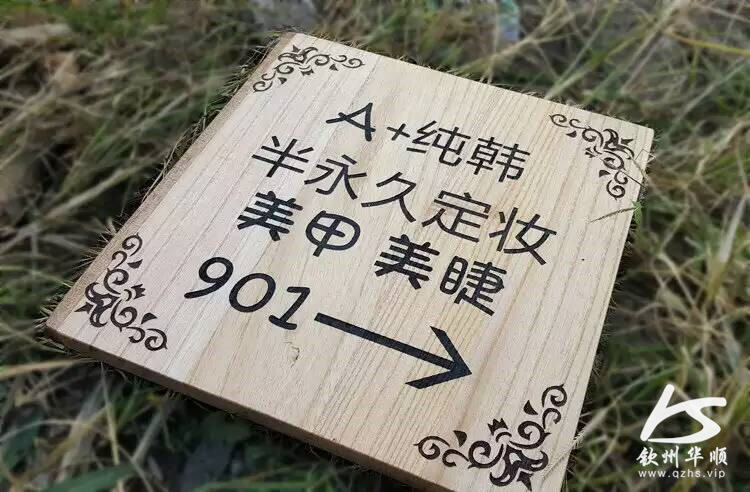 A+纯韩
半永久定妆
美甲 美睫
901→
钦州华顺
www.qzhs.vip